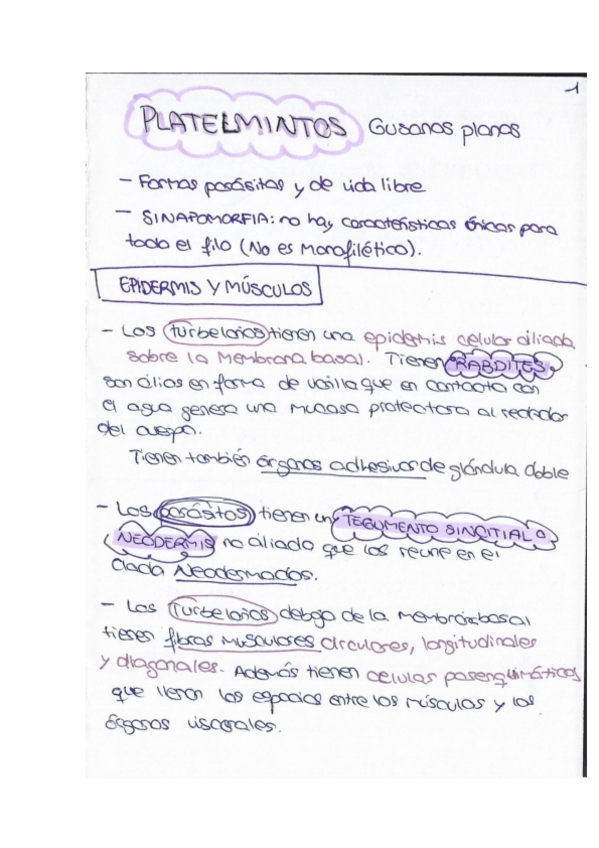 1
PLATELMINTOS Gusanos planos
- Formas parásitas y de vida libre
- SINAPOMORFIA: no hay características únicas para
todo el filo (No es Monofilético).
EPIDERMIS Y MÚSCULOS
- Los turbelarios tienen una epidermis celular ciliada
sobre la Membrana basal. Tienen RABDITES,
son cilios en forma de varilla que en contacto con
el agua genera una mucosa protectora al rededor
del cuerpo.
Tienen también órganos adhesivos de glándula doble
- Los parásitos tienen un TEGUMENTO SINCITIAL o
NEODERMIS no ciliado que los reune en el
clada Neodermados.
- Los Turbelarios debajo de la membrana basal
tienen fibras musculares circulares, longitudinales
y diagonales. Además tienen celulas parenquimáticas
que llenan los espacios entre los músculos y los
órganos viscerales.